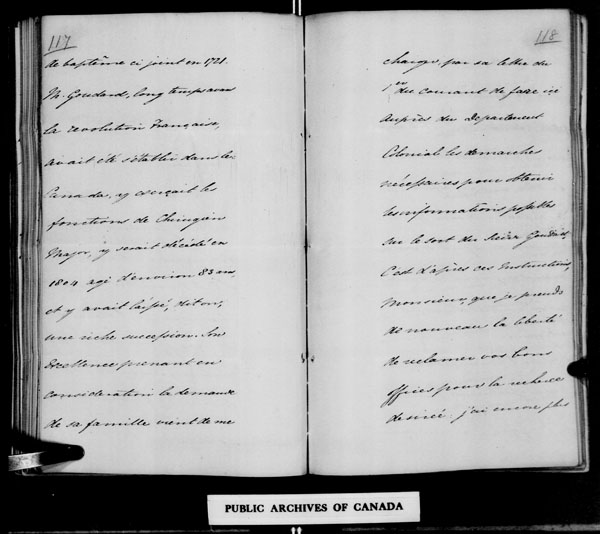 117
de baptême ci joint en 1721.
M. Goudard, long temps avan
la revolution Française,
avait été s'établir dans le
Canada, y exerçait les
fonctions de Chirurgien
Major, y serait décédé en
1804 agé d'environ 83 ans,
et y avait laissé, dit on,
une riche succession. Son
Excellence prenant en
consideration la demande
de sa famille vient de me
118
charger, par sa lettre du
1er du courant de faire ici
auprès du Département
Colonial les demarches
nécessaires pour obtenir
les informations possibles
sur le sort du Sieur Goudard.
C'est d'après ces Instructions,
Monsieur, que je prends
de nouveau la liberté
de reclamer vos bons
offices pour la recherche
désirée. j'ai encore plus
PUBLIC ARCHIVES OF CANADA